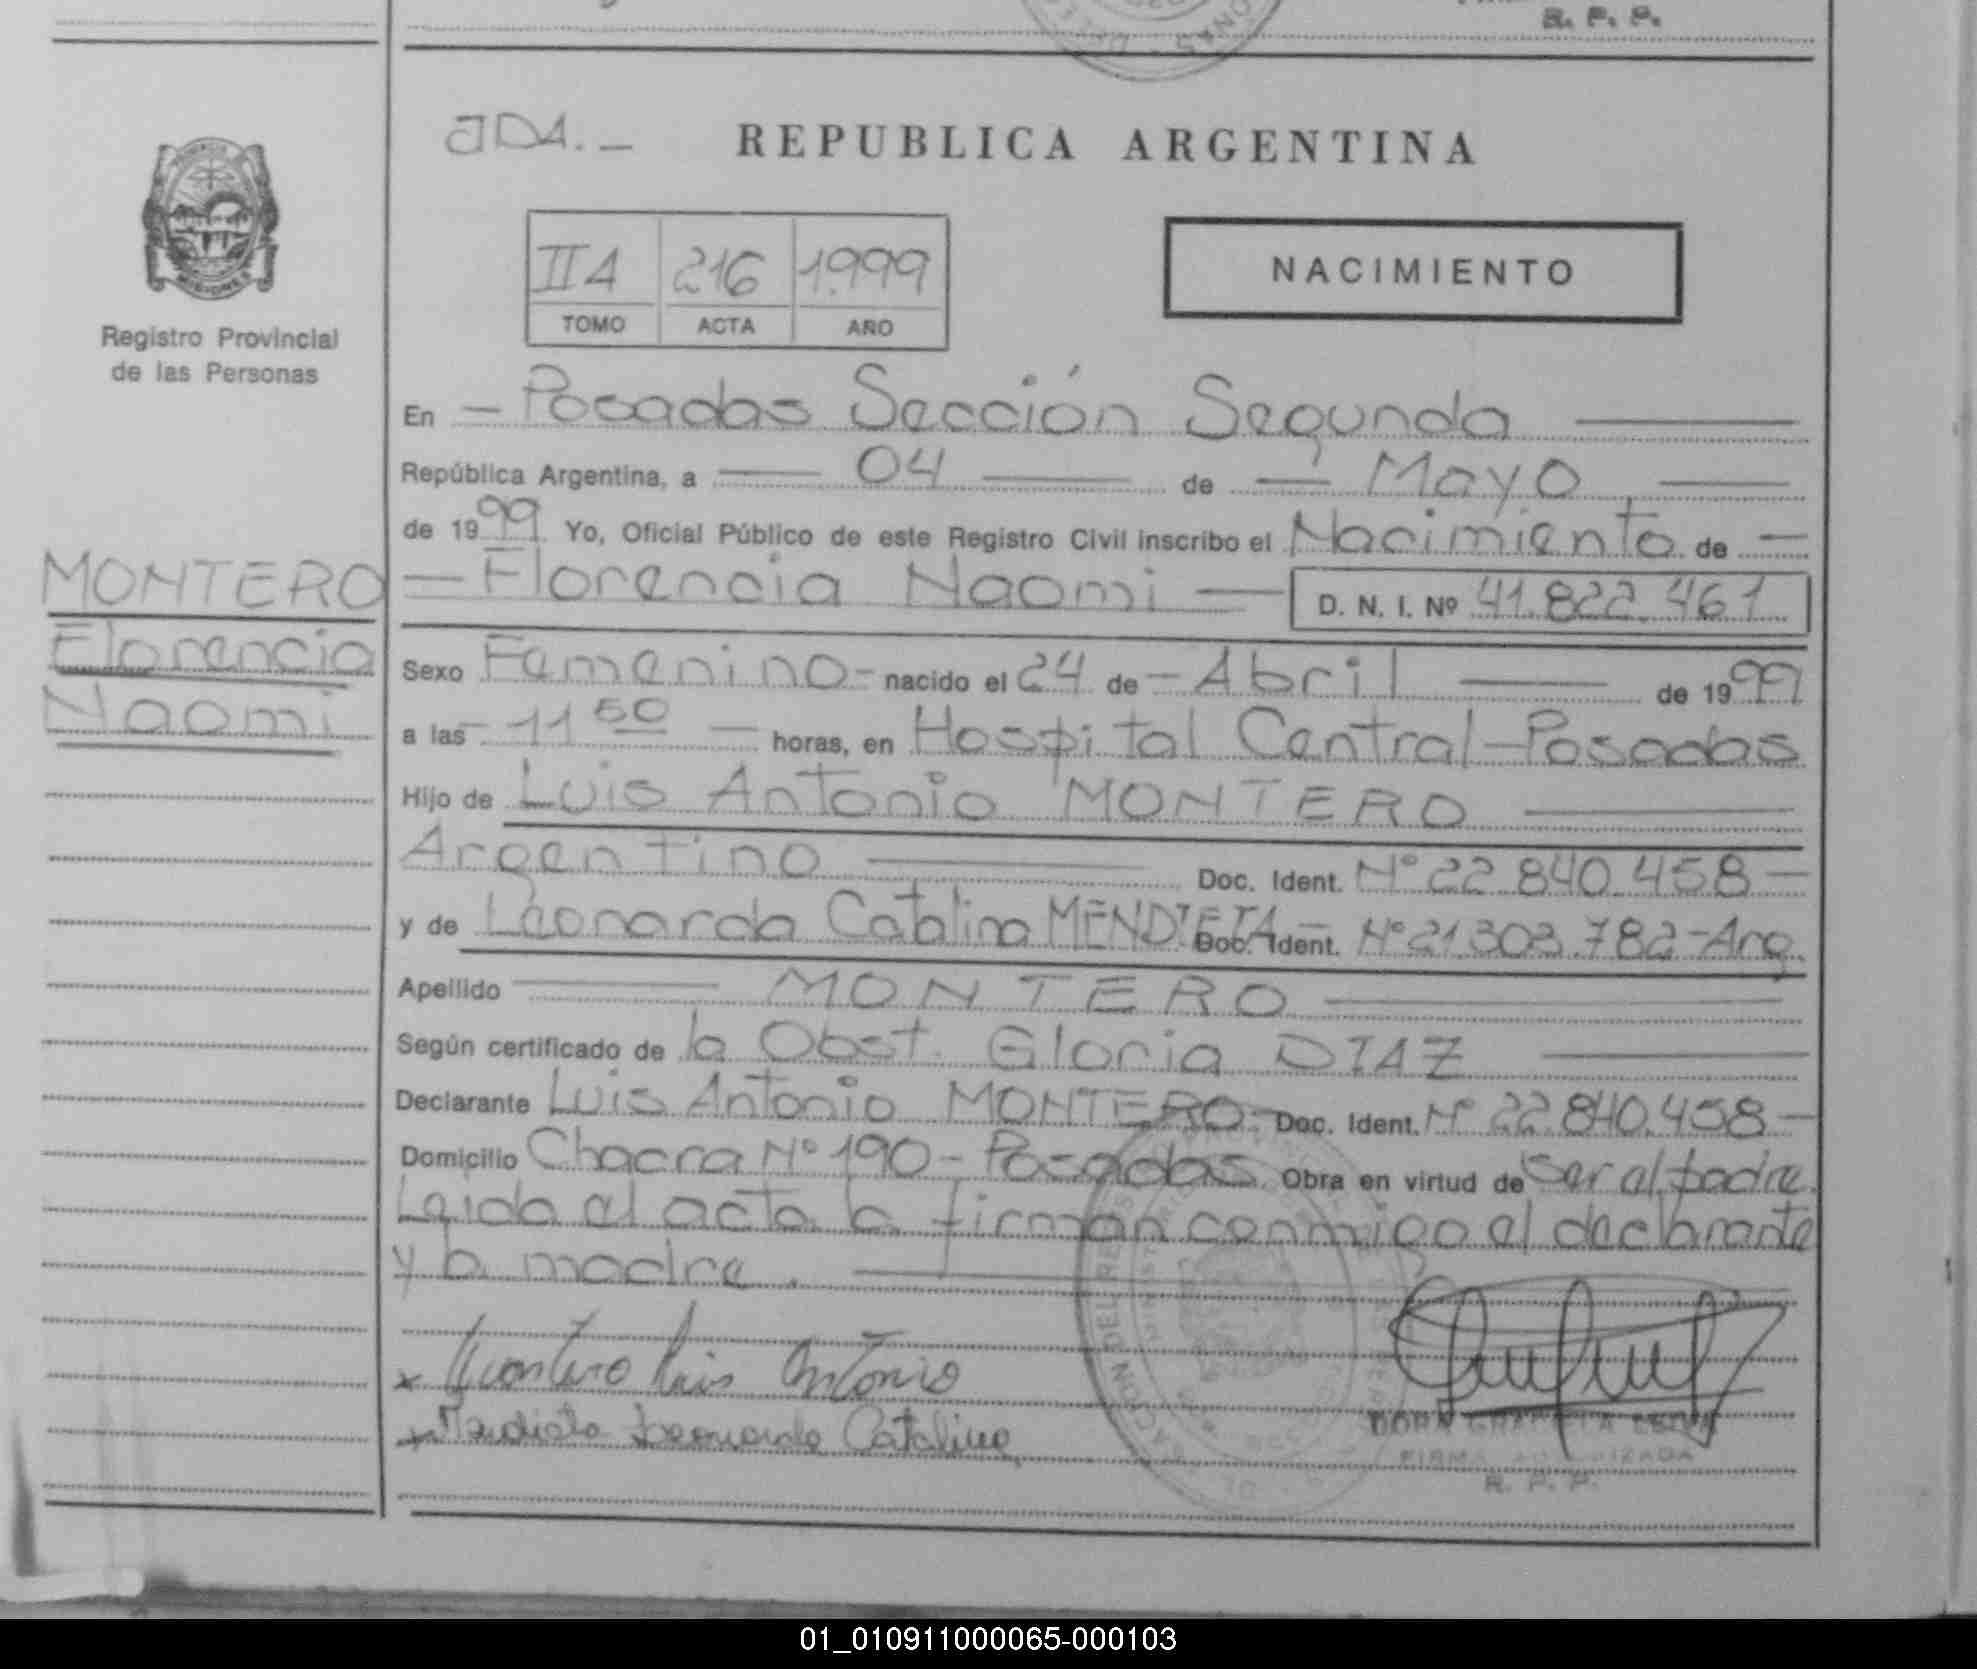 R. P. P.
JDA.-
REPUBLICA ARGENTINA
II4 216 1.999
TOMO ACTA AÑO
NACIMIENTO
MISIONES
Registro Provincial
de las Personas
MONTERO
Florencia
Naomi
En - Posadas Sección Segunda
República Argentina, a 04 de Mayo
de 1999 Yo, Oficial Público de este Registro Civil inscribo el Nacimiento de -
- Florencia Naomi - D. N. I. Nº 41.822.461
Sexo Femenino - nacido el 24 de - Abril de 1999
a las - 11 50 - horas, en Hospital Central - Posadas
Hijo de Luis Antonio MONTERO
Argentino Doc. Ident. Nº 22.840.458 -
y de Leonarda Catalina MENDIETA - Doc. Ident. Nº 21.303.782 - Arg.
Apellido MONTERO
Según certificado de la Obst. Gloria DIAZ
Declarante Luis Antonio MONTERO - Doc. Ident. Nº 22.840.458 -
Domicilio Chacra Nº 190 - Posadas Obra en virtud de Ser el padre.
Leida el acta la firman conmigo el declarante
y la madre.
x Montero Luis Antonio
x Mendieta Leonarda Catalina
DORA GRACIELA
FIRMA AUTORIZADA
R. P. P.
01_010911000065-000103